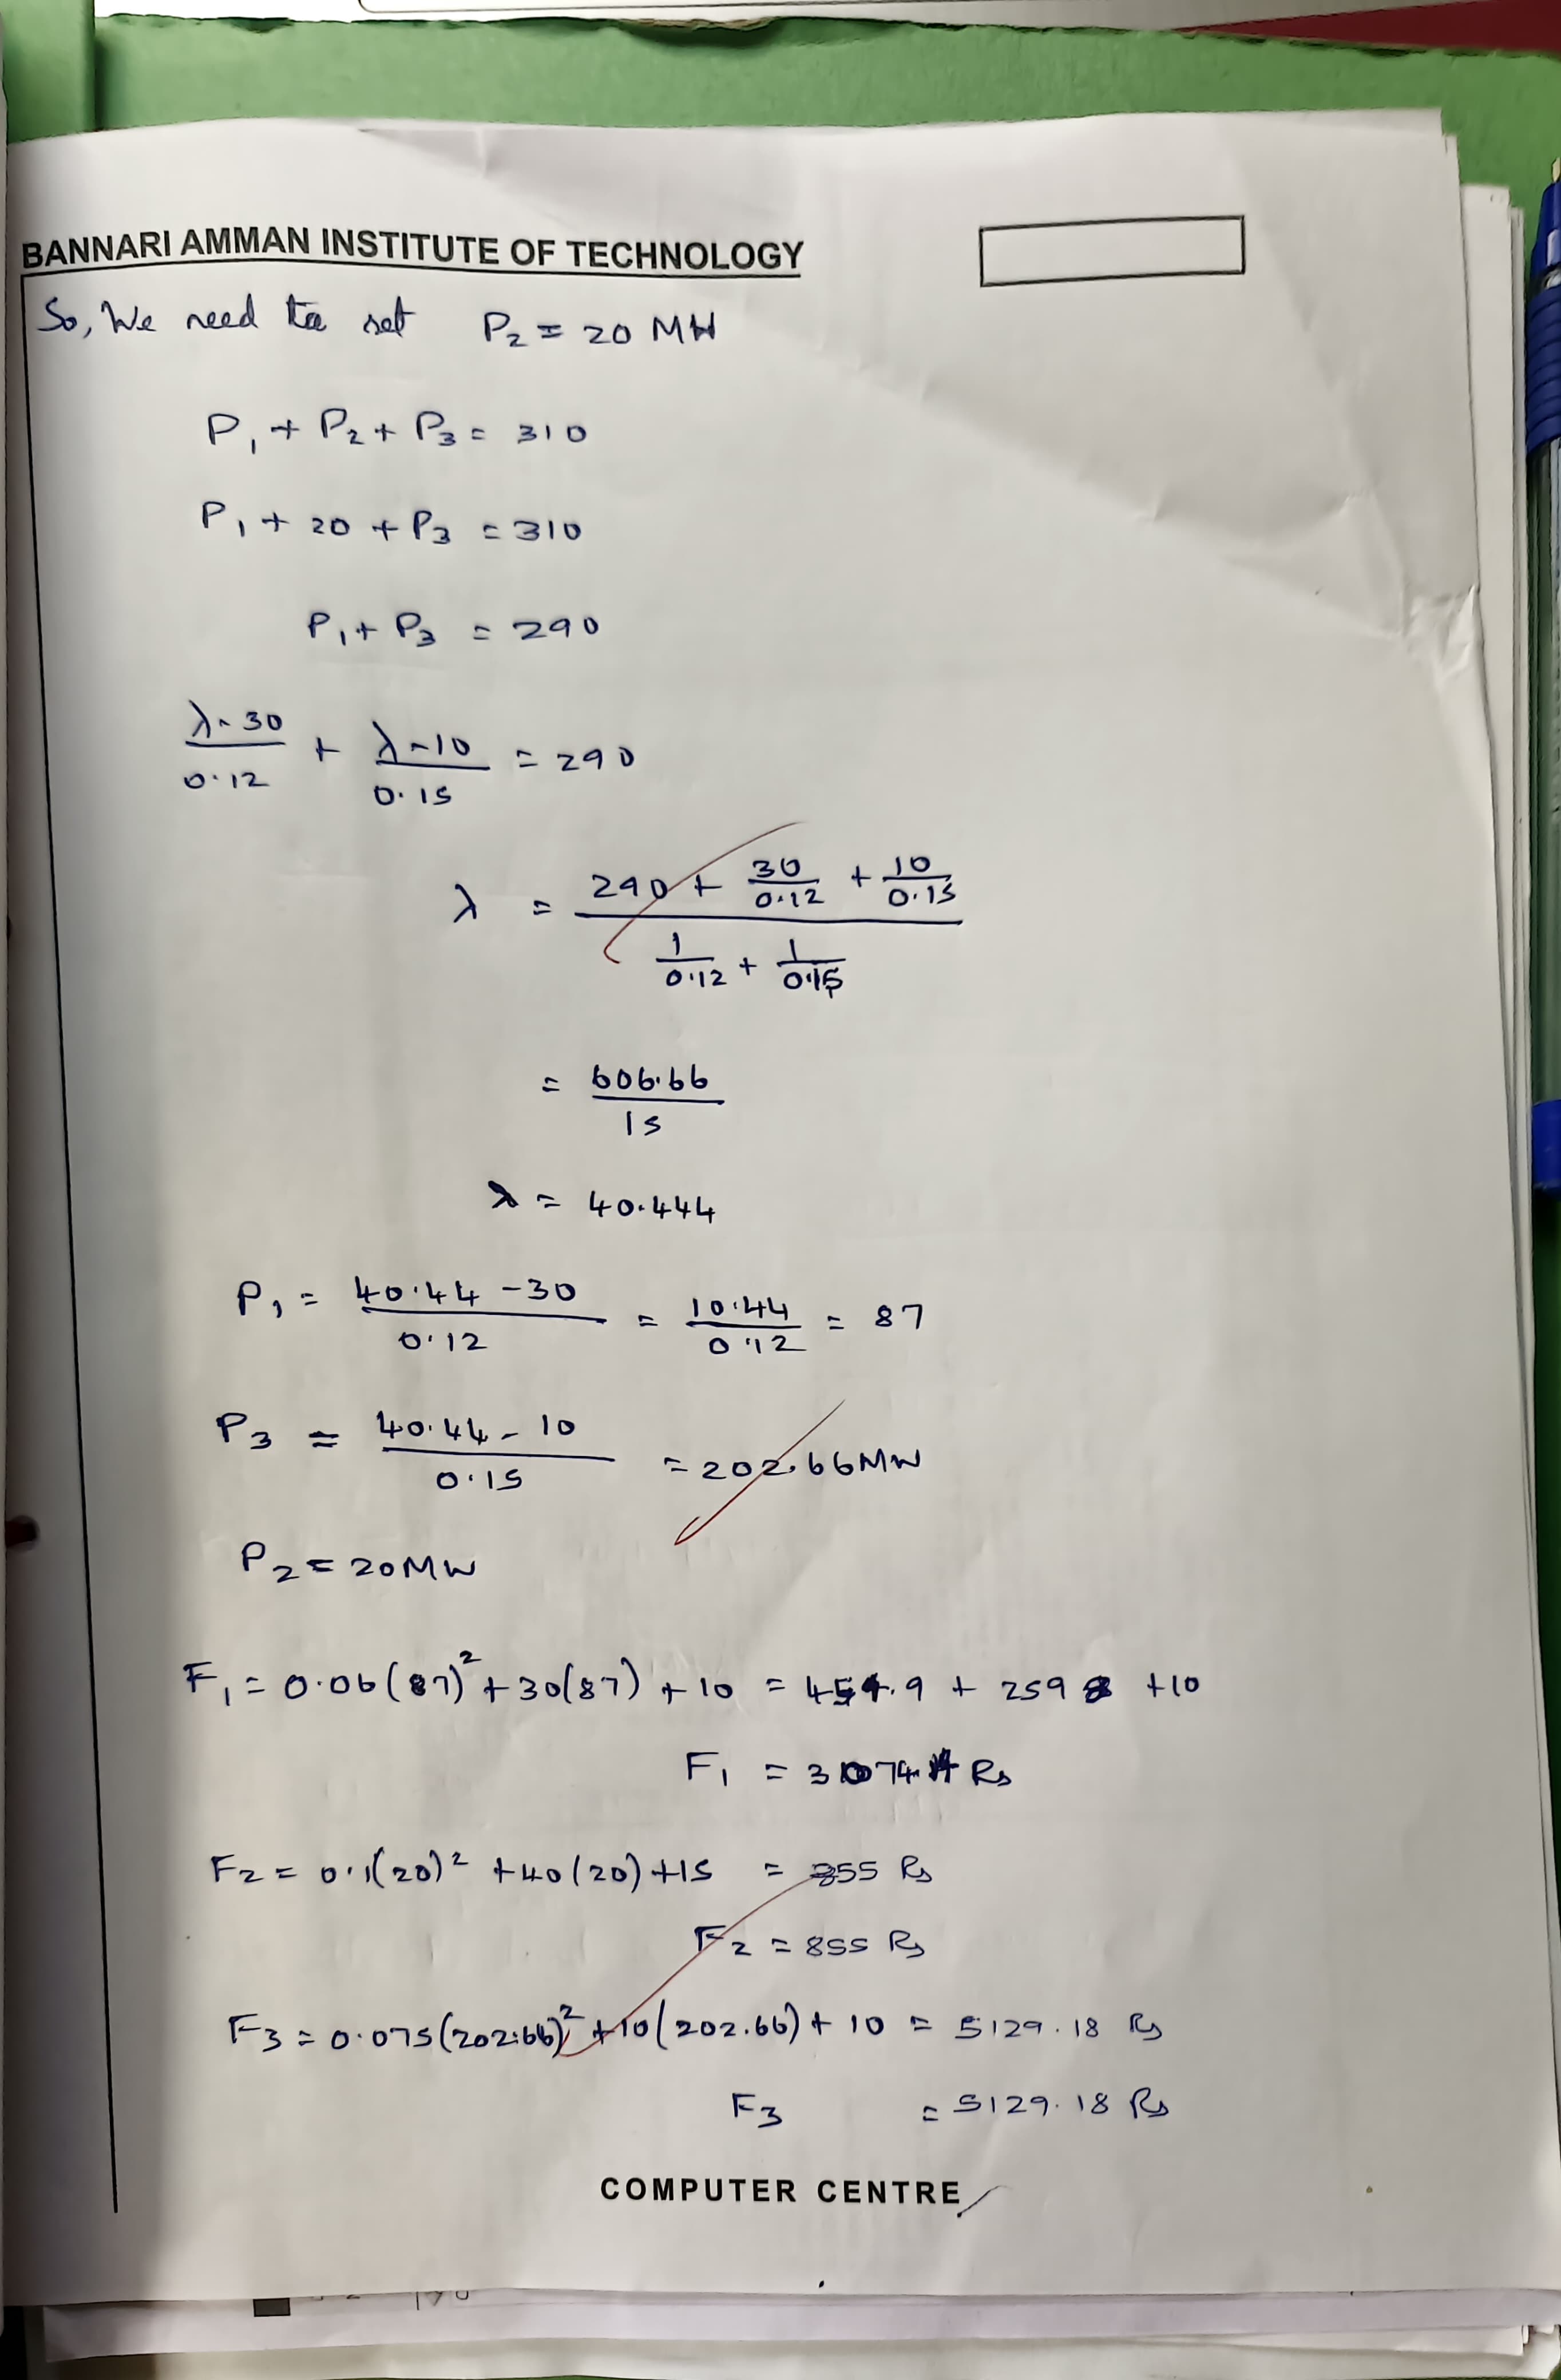 BANNARI AMMAN INSTITUTE OF TECHNOLOGY
So, We need to set P₂ = 20 MW
P₁ + P₂ + P₃ = 310
P₁ + 20 + P₃ = 310
P₁ + P₃ = 290
(λ - 30)/0.12 + (λ - 10)/0.15 = 290
λ = (290 + 30/0.12 + 10/0.15)/(1/0.12 + 1/0.15)
= 606.66/15
λ = 40.444
P₁ = (40.44 - 30)/0.12 = 10.44/0.12 = 87
P₃ = (40.44 - 10)/0.15 = 202.66 MW
P₂ = 20 MW
F₁ = 0.06(87)² + 30(87) + 10 = + +10
F₁ = Rs
F₂ = 0.1(20)² + 40(20) + 15 = 855 Rs
F₂ = 855 Rs
F₃ = 0.075(202.66)² + 10(202.66) + 10 = 5129.18 Rs
F₃ = 5129.18 Rs
COMPUTER CENTRE